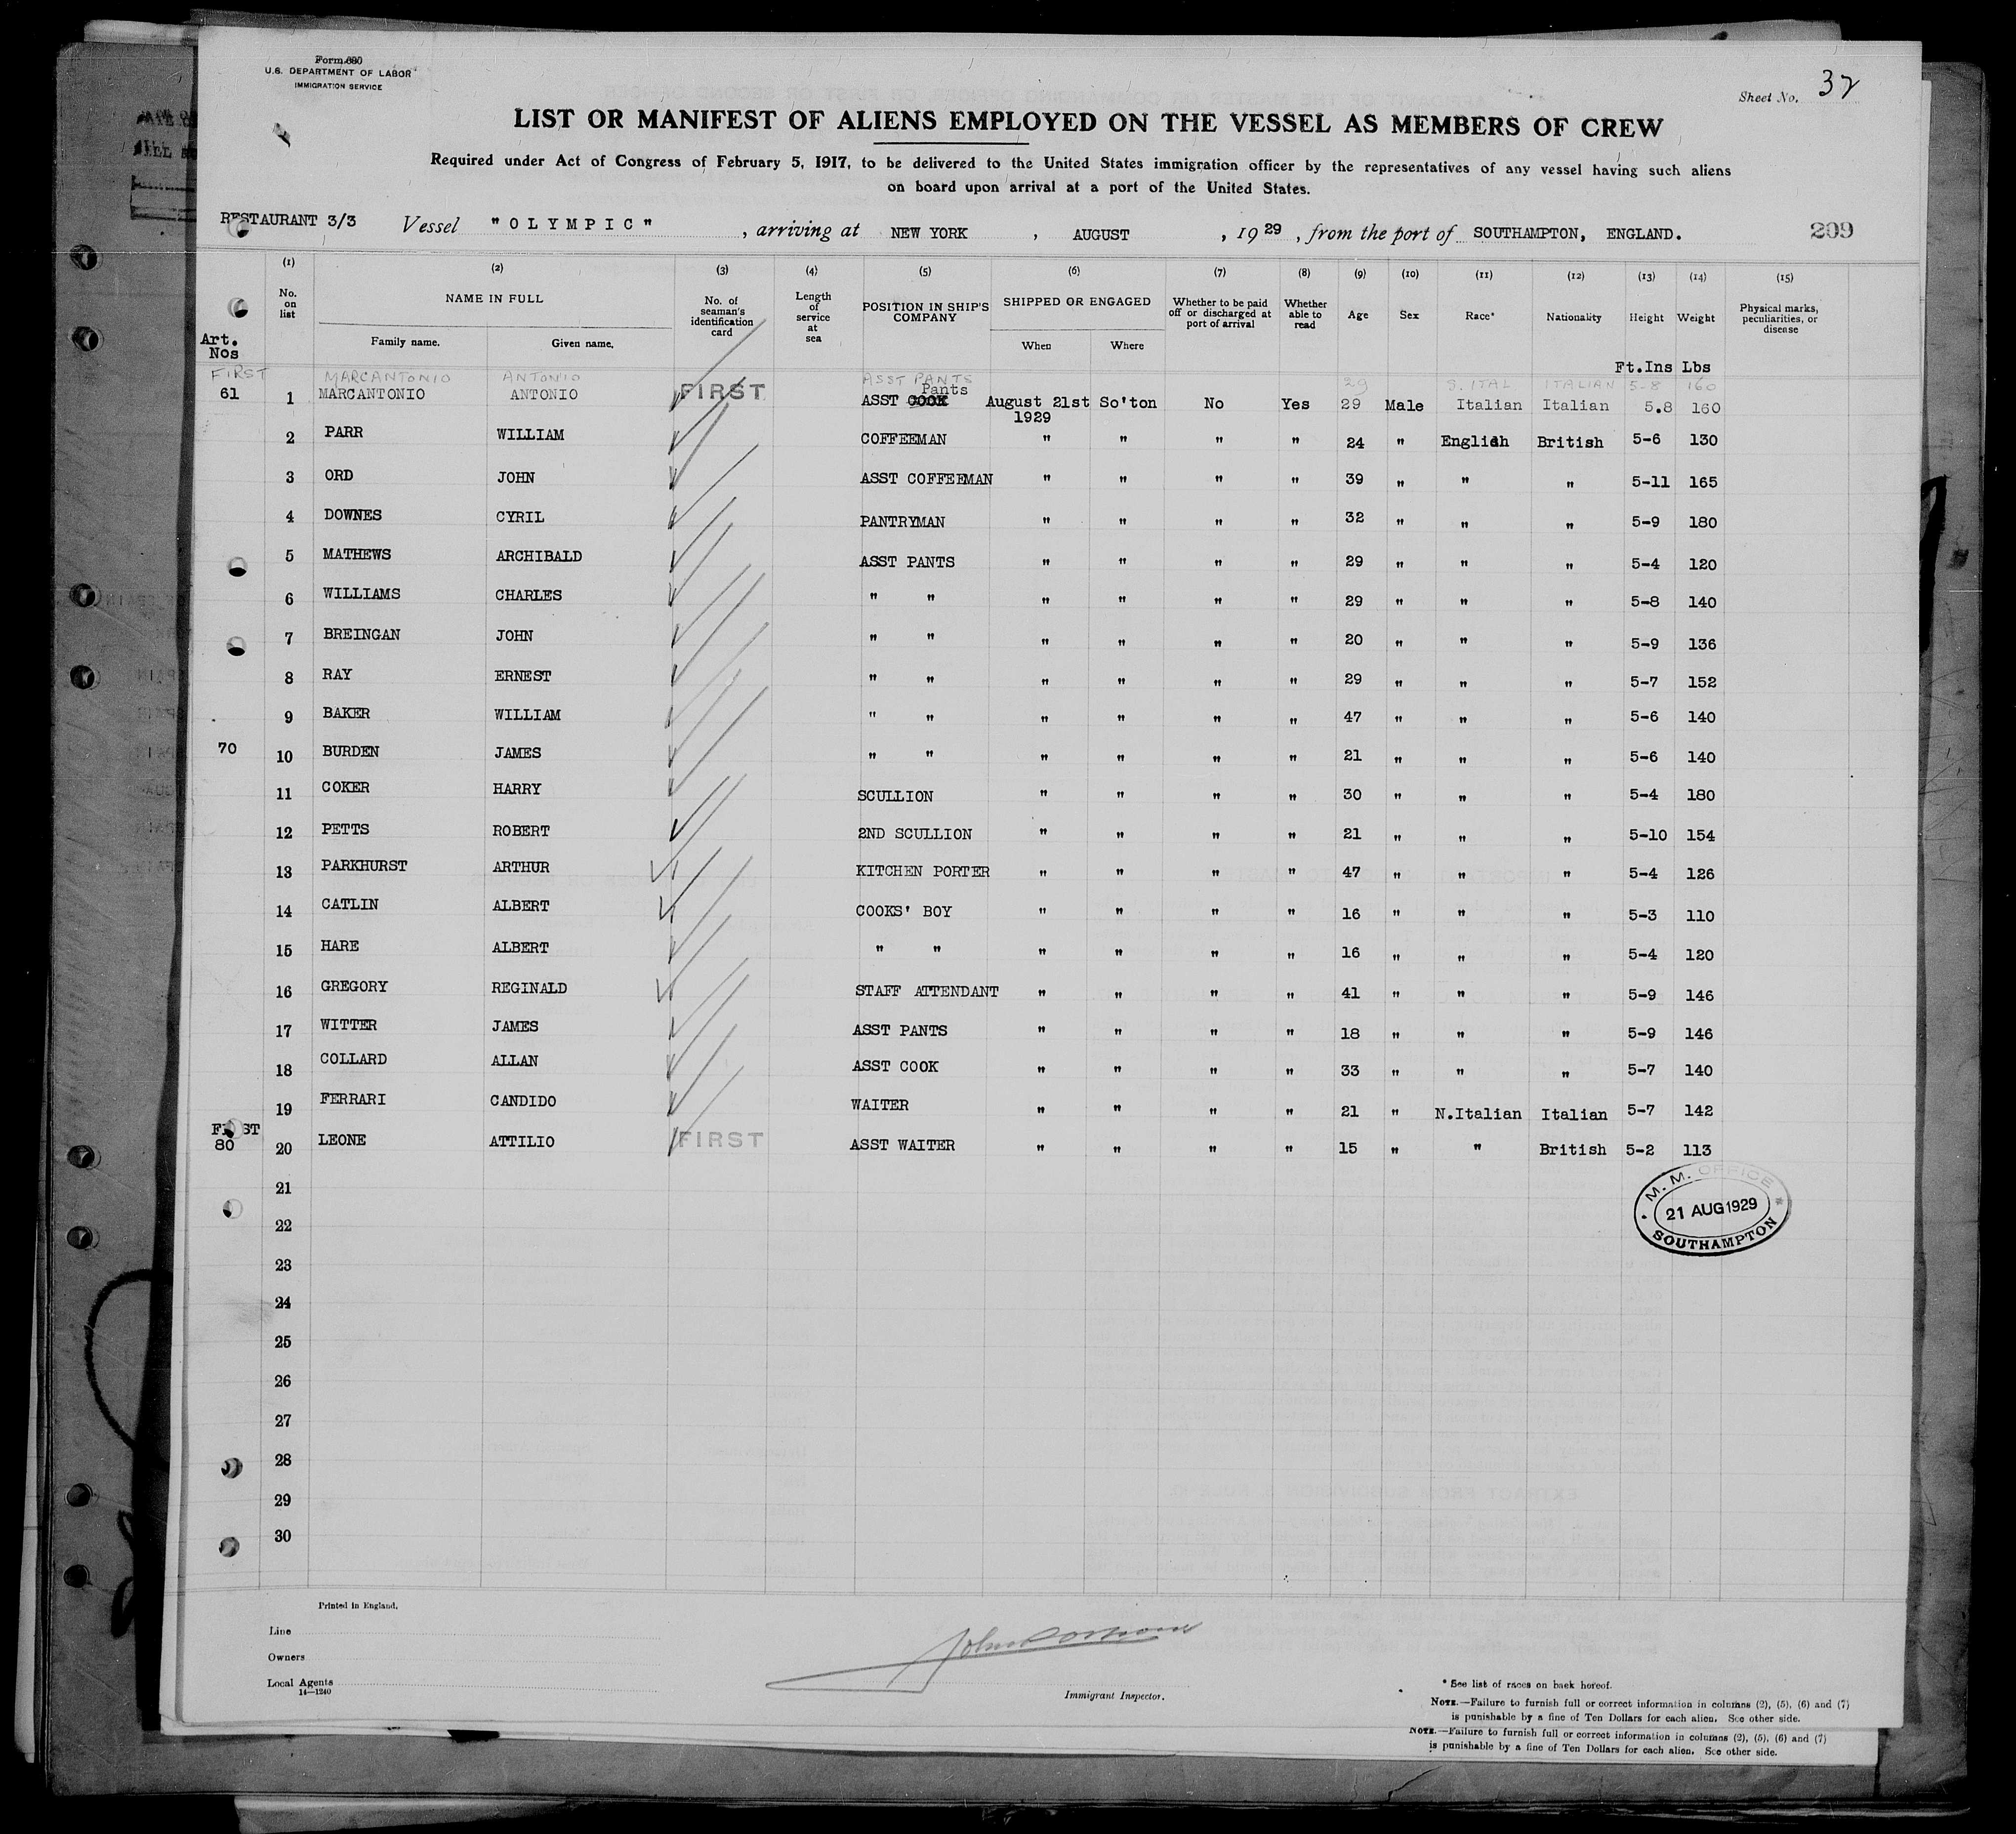 Form 680
U.S. DEPARTMENT OF LABOR
IMMIGRATION SERVICE
Sheet No. 32
LIST OR MANIFEST OF ALIENS EMPLOYED ON THE VESSEL AS MEMBERS OF CREW
Required under Act of Congress of February 5, 1917, to be delivered to the United States immigration officer by the representatives of any vessel having such aliens
on board upon arrival at a port of the United States.
RESTAURANT 3/3 Vessel "OLYMPIC", arriving at NEW YORK, AUGUST, 1929, from the port of SOUTHAMPTON, ENGLAND. 209
(1) (2) (3) (4) (5) (6) (7) (8) (9) (10) (11) (12) (13) (14) (15)
No. on list NAME IN FULL No. of seaman's identification card Length of service at sea POSITION IN SHIP'S COMPANY SHIPPED OR ENGAGED Whether to be paid off or discharged at port of arrival Whether able to read Age Sex Race* Nationality Height Weight Physical marks, peculiarities, or disease
Art. Nos Family name. Given name. When Where
Ft.Ins Lbs
FIRST MARCANTONIO ANTONIO ASST PANTS 29 S. ITAL ITALIAN 5-8 160
Pants
61 1 MARCANTONIO ANTONIO FIRST ASST COOK August 21st 1929 So'ton No Yes 29 Male Italian Italian 5.8 160
2 PARR WILLIAM COFFEEMAN " " " " 24 " English British 5-6 130
3 ORD JOHN ASST COFFEEMAN " " " " 39 " " " 5-11 165
4 DOWNES CYRIL PANTRYMAN " " " " 32 " " " 5-9 180
5 MATHEWS ARCHIBALD ASST PANTS " " " " 29 " " " 5-4 120
6 WILLIAMS CHARLES " " " " " " 29 " " " 5-8 140
7 BREINGAN JOHN " " " " " " 20 " " " 5-9 136
8 RAY ERNEST " " " " " " 29 " " " 5-7 152
9 BAKER WILLIAM " " " " " " 47 " " " 5-6 140
70 10 BURDEN JAMES " " " " " " 21 " " " 5-6 140
11 COKER HARRY SCULLION " " " " 30 " " " 5-4 180
12 PETTS ROBERT 2ND SCULLION " " " " 21 " " " 5-10 154
13 PARKHURST ARTHUR KITCHEN PORTER " " " " 47 " " " 5-4 126
14 CATLIN ALBERT COOKS' BOY " " " " 16 " " " 5-3 110
15 HARE ALBERT " " " " " " 16 " " " 5-4 120
16 GREGORY REGINALD STAFF ATTENDANT " " " " 41 " " " 5-9 146
17 WITTER JAMES ASST PANTS " " " " 18 " " " 5-9 146
18 COLLARD ALLAN ASST COOK " " " " 33 " " " 5-7 140
19 FERRARI CANDIDO WAITER " " " " 21 " N.Italian Italian 5-7 142
FIRST
80 20 LEONE ATTILIO FIRST ASST WAITER " " " " 15 " " British 5-2 113
21
M. M. OFFICE
21 AUG 1929
SOUTHAMPTON
22
23
24
25
26
27
28
29
30
Printed in England.
Line
Owners
Local Agents
14—1240
Immigrant Inspector.
* See list of races on back hereof.
NOTE.—Failure to furnish full or correct information in columns (2), (5), (6) and (7)
is punishable by a fine of Ten Dollars for each alien. See other side.
NOTE.—Failure to furnish full or correct information in columns (2), (5), (6) and (7)
is punishable by a fine of Ten Dollars for each alien. See other side.